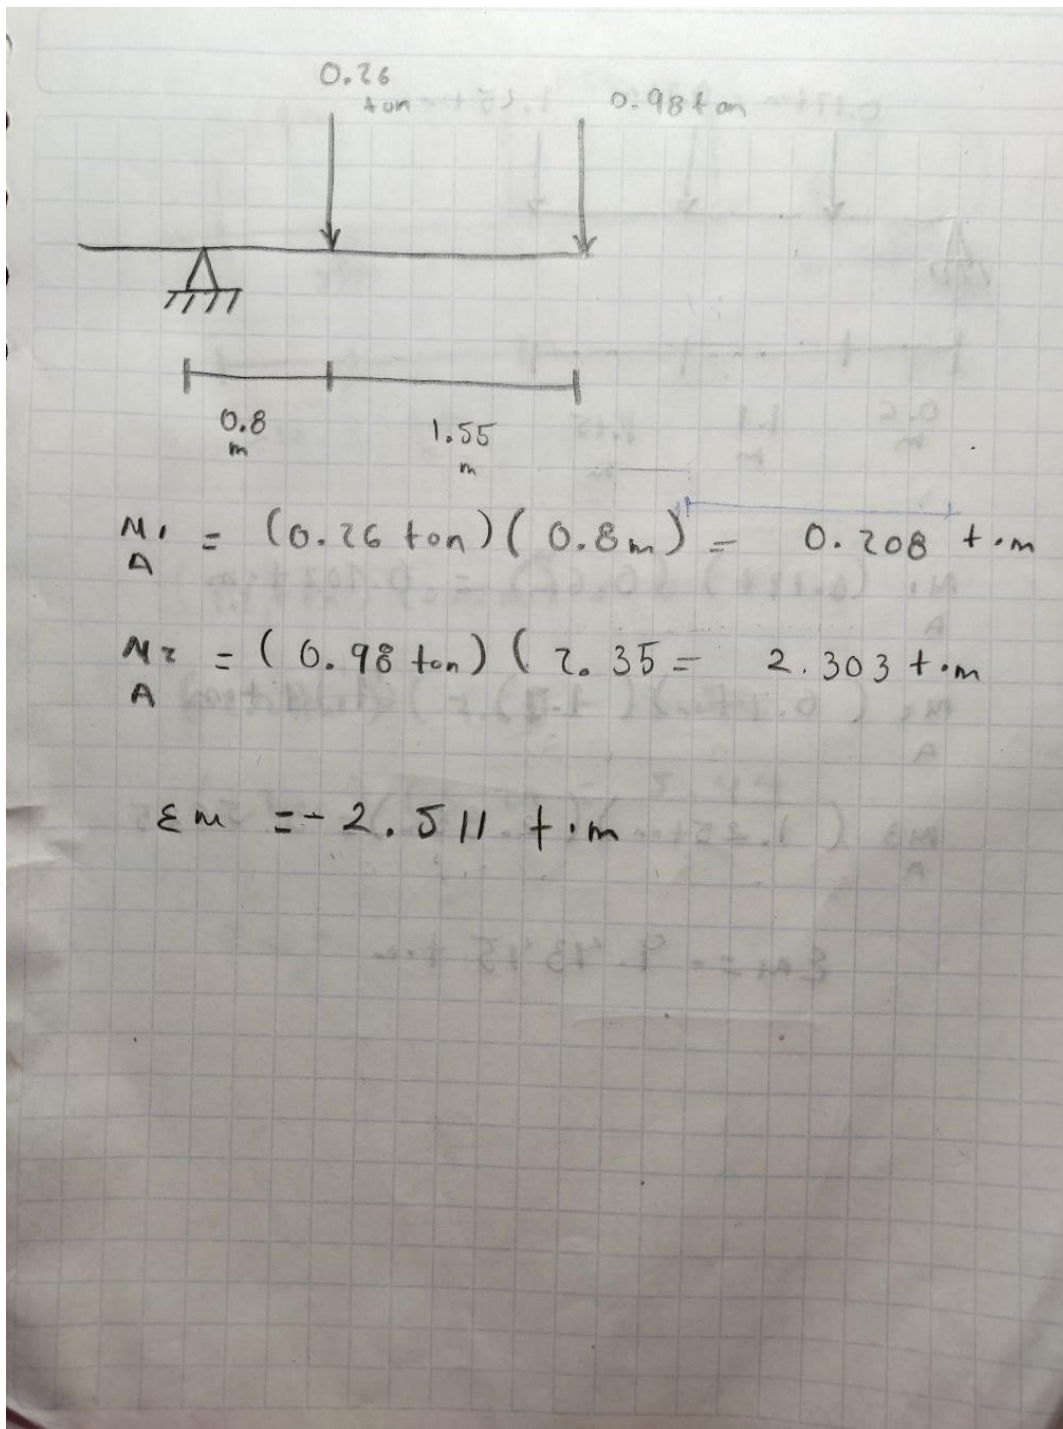 0.26
ton
0.98 ton
0.8
m
1.55
m
M1 = (0.26 ton)(0.8m) = 0.208 t·m
A
M2 = (0.98 ton)(2.35 = 2.303 t·m
A
ΣM = -2.511 t·m